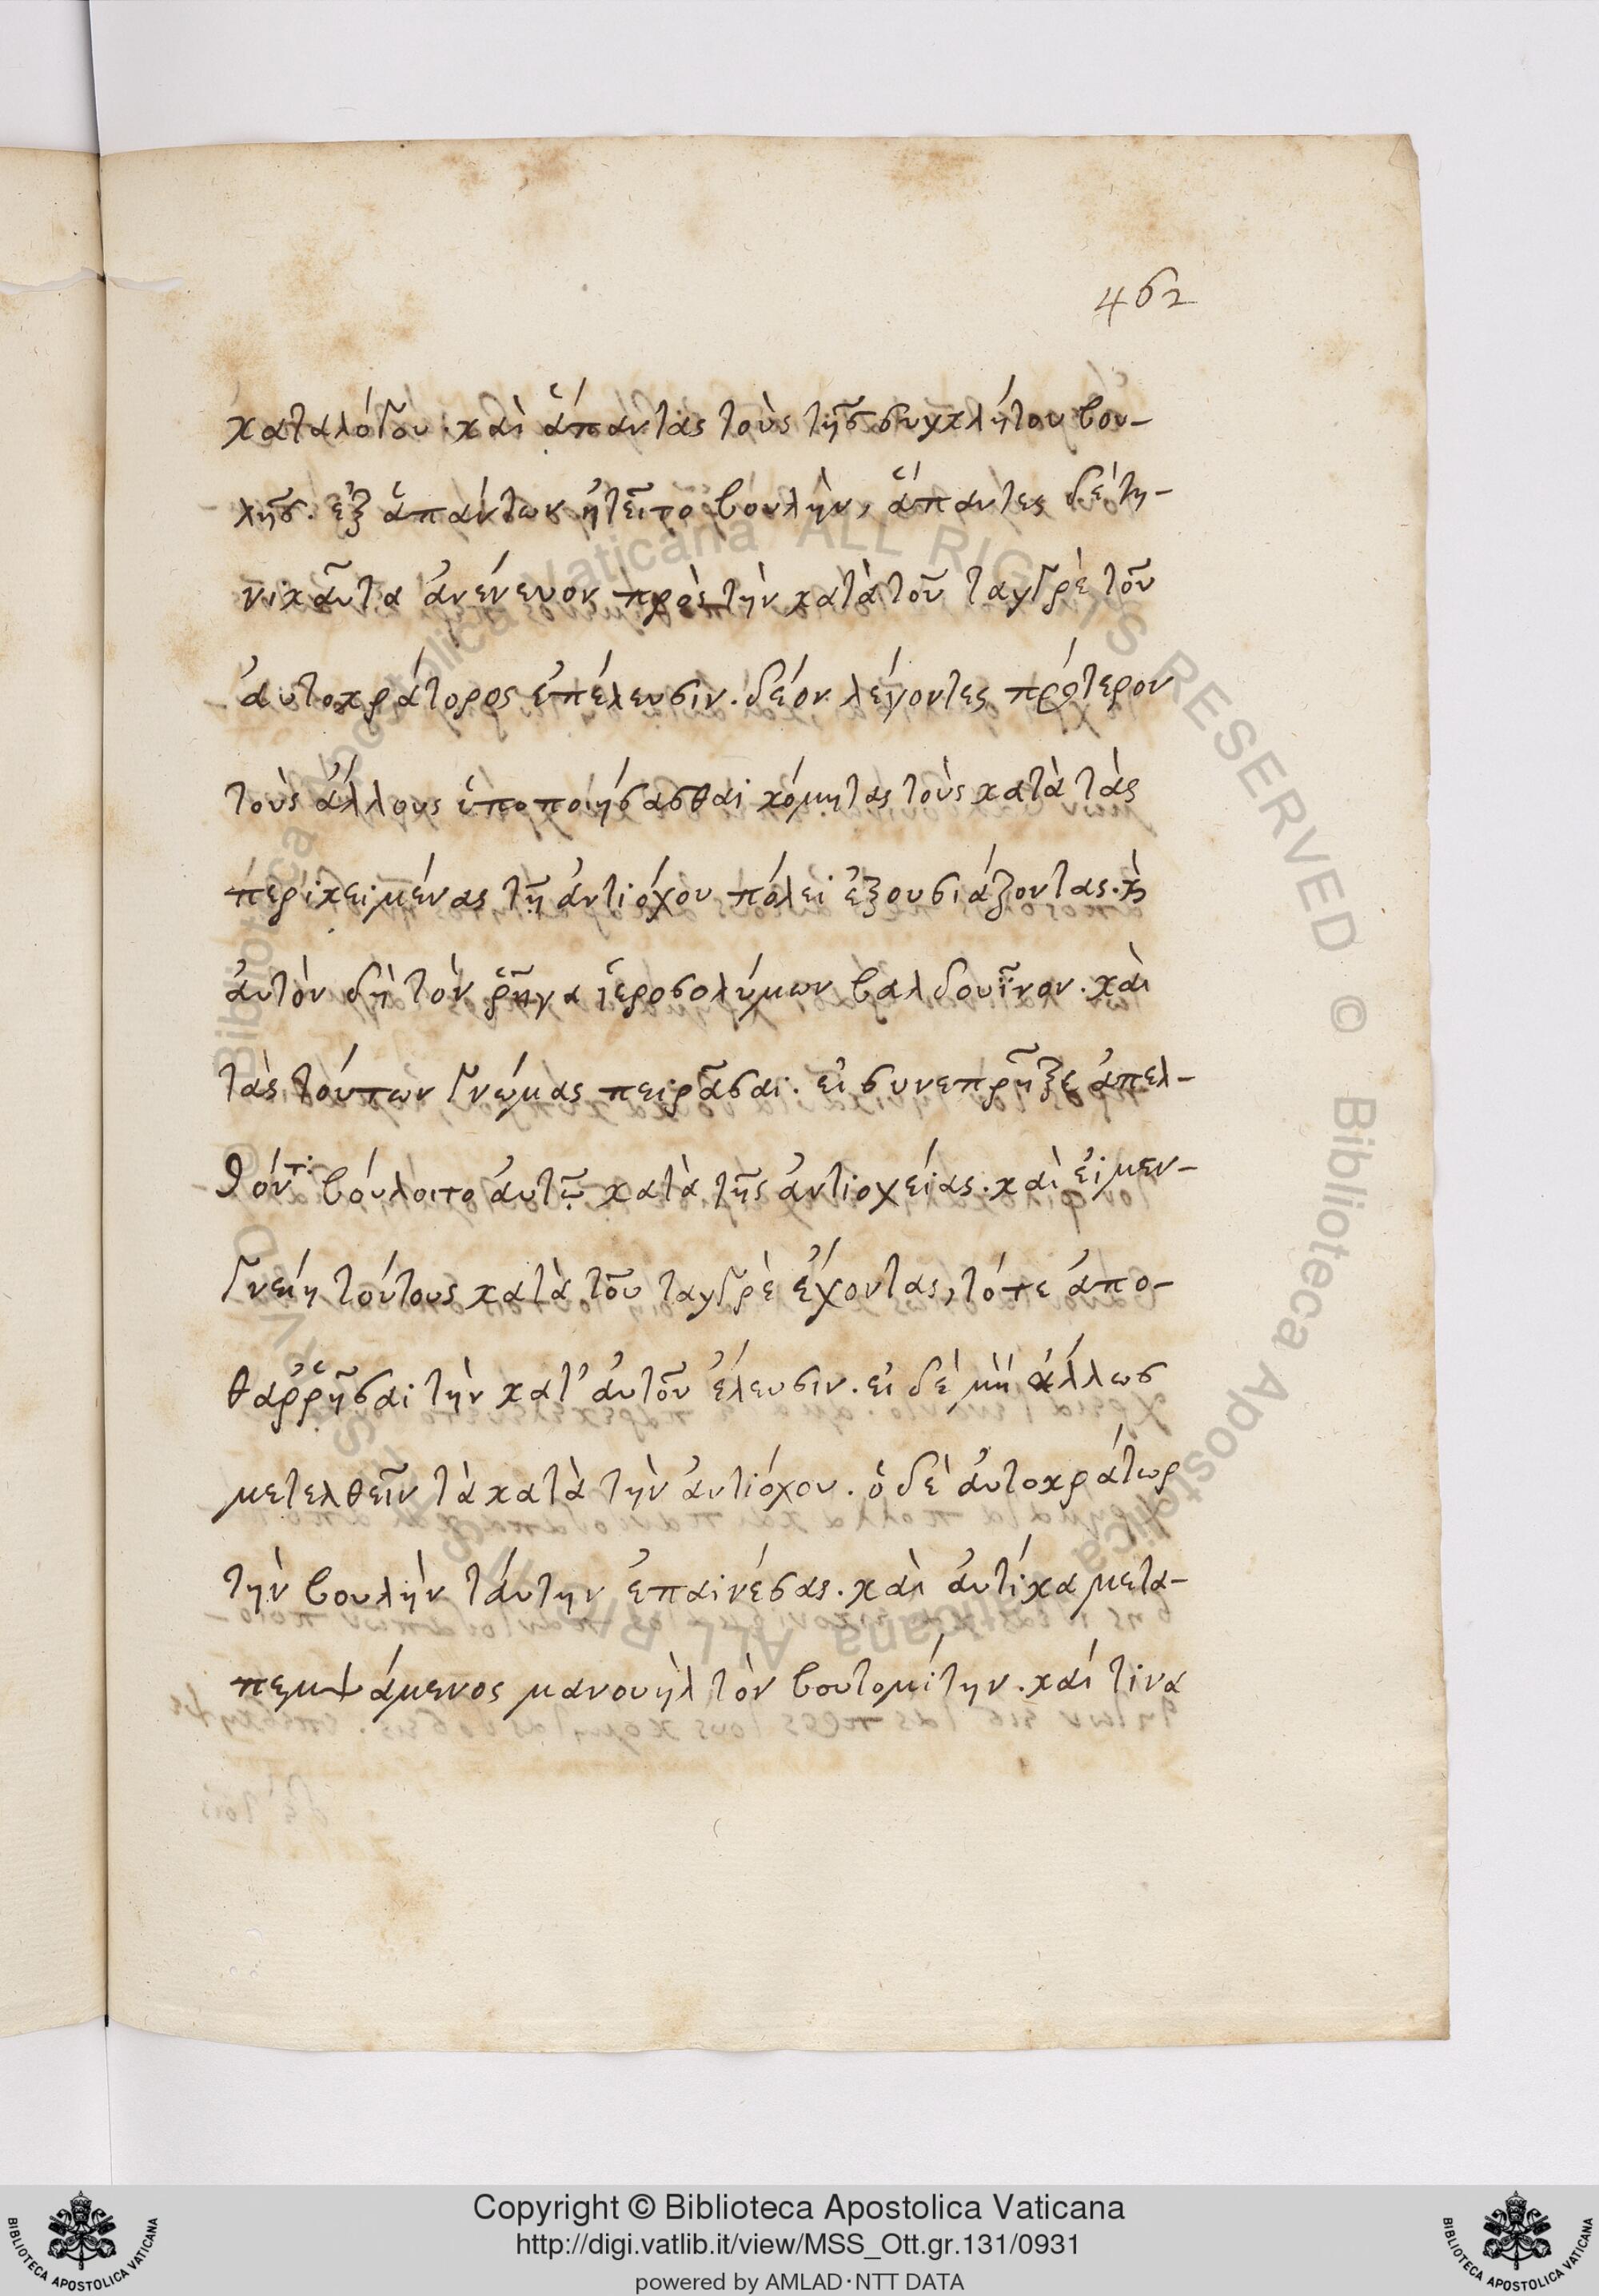 462
καταλόγου· καὶ ἅπαντας τοὺς τῆς συγκλήτου βου-
λῆς. ἐξ ἁπάντων ᾐτεῖτο βουλὴν, ἅπαντες δὲ τη-
νικαῦτα ἀνένευον πρὸς τὴν κατὰ τοῦ ταγγρὲ τοῦ
αὐτοκράτορος ἐπέλευσιν. δέον λέγοντες πρότερον
τοὺς ἄλλους ὑποποιήσασθαι κόμητας τοὺς κατὰ τὰς
περικειμένας τῇ ἀντιόχου πόλει ἐξουσιάζοντας. κὴ
αὐτὸν δὴ τὸν ῥῆγα ἱεροσολύμων βαλδουῖνον. καὶ
τὰς τούτων γνώμας πειρᾶσαι. εἰ συνεπρῆξε ἀπελ-
θόντι βούλοιτο αὐτῷ κατὰ τῆς ἀντιοχείας. καὶ εἰ μεν-
γνείη τούτους κατὰ τοῦ ταγγρὲ ἔχοντας, τότε ἀπο-
θαῤῥῆσαι τὴν κατ' αὐτοῦ ἔλευσιν. εἰ δὲ μὴ ἄλλως
μετελθεῖν τὰ κατὰ τὴν ἀντιόχου. ὁ δὲ αὐτοκράτωρ
τὴν βουλὴν ταύτην ἐπαινέσας. καὶ αὐτίκα μετα-
πεμψάμενος μανουὴλ τὸν βουτομίτην. καί τινα
Copyright © Biblioteca Apostolica Vaticana
http://digi.vatlib.it/view/MSS_Ott.gr.131/0931
powered by AMLAD·NTT DATA